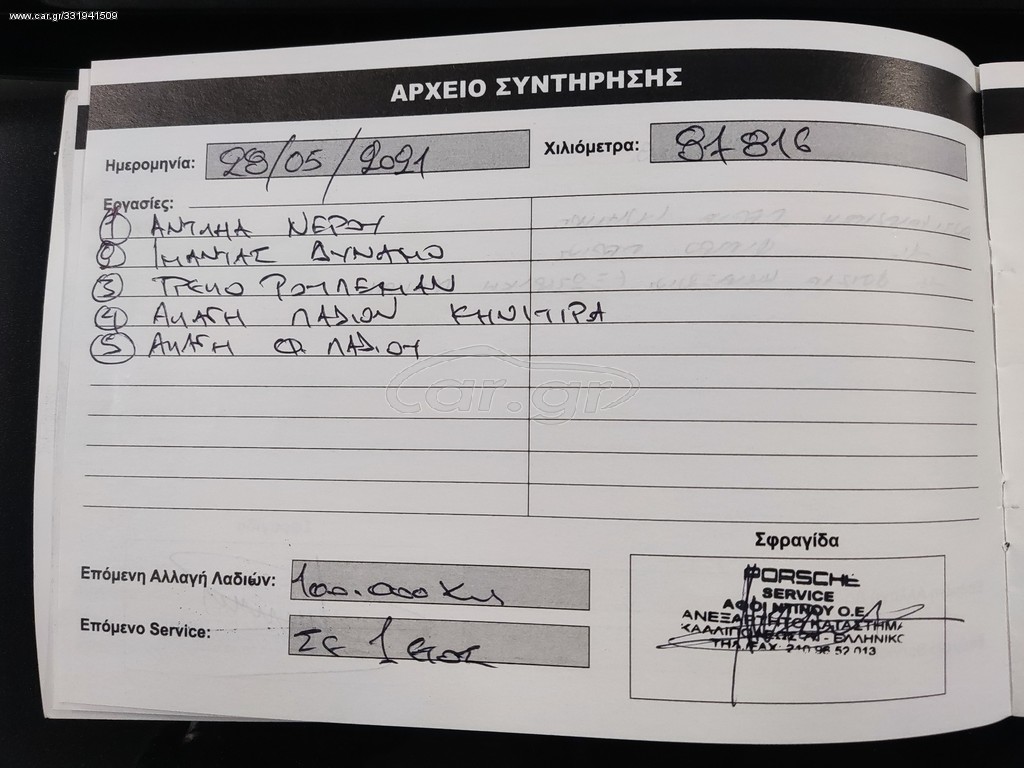 www.car.gr/331941509
ΑΡΧΕΙΟ ΣΥΝΤΗΡΗΣΗΣ
Ημερομηνία: 28/05/2021 Χιλιόμετρα: 81816
Εργασίες:
① ΑΝΤΛΗΑ ΝΕΡΟΥ
② ΙΜΑΝΤΑΣ ΔΥΝΑΜΟ
③ ΤΡΕΛΟ ΡΟΥΛΕΜΑΝ
④ ΑΛΛΑΓΗ ΛΑΔΙΩΝ ΚΗΝΙΤΙΡΑ
⑤ ΑΛΛΑΓΗ Φ ΛΑΔΙΟΥ
car.gr
Σφραγίδα
Επόμενη Αλλαγή Λαδιών: 100.000 Χλ
Επόμενο Service: ΣΕ 1 έτος
PORSCHE
SERVICE
ΑΦΟΙ ΝΤΙΝΟΥ Ο.Ε
ΑΝΕΞΑΡΤΗΤΟ ΚΑΤΑΣΤΗΜΑ
ΕΛΛΗΝΙΚΟ
ΤΗΛ/FAX: 210 96 52 013